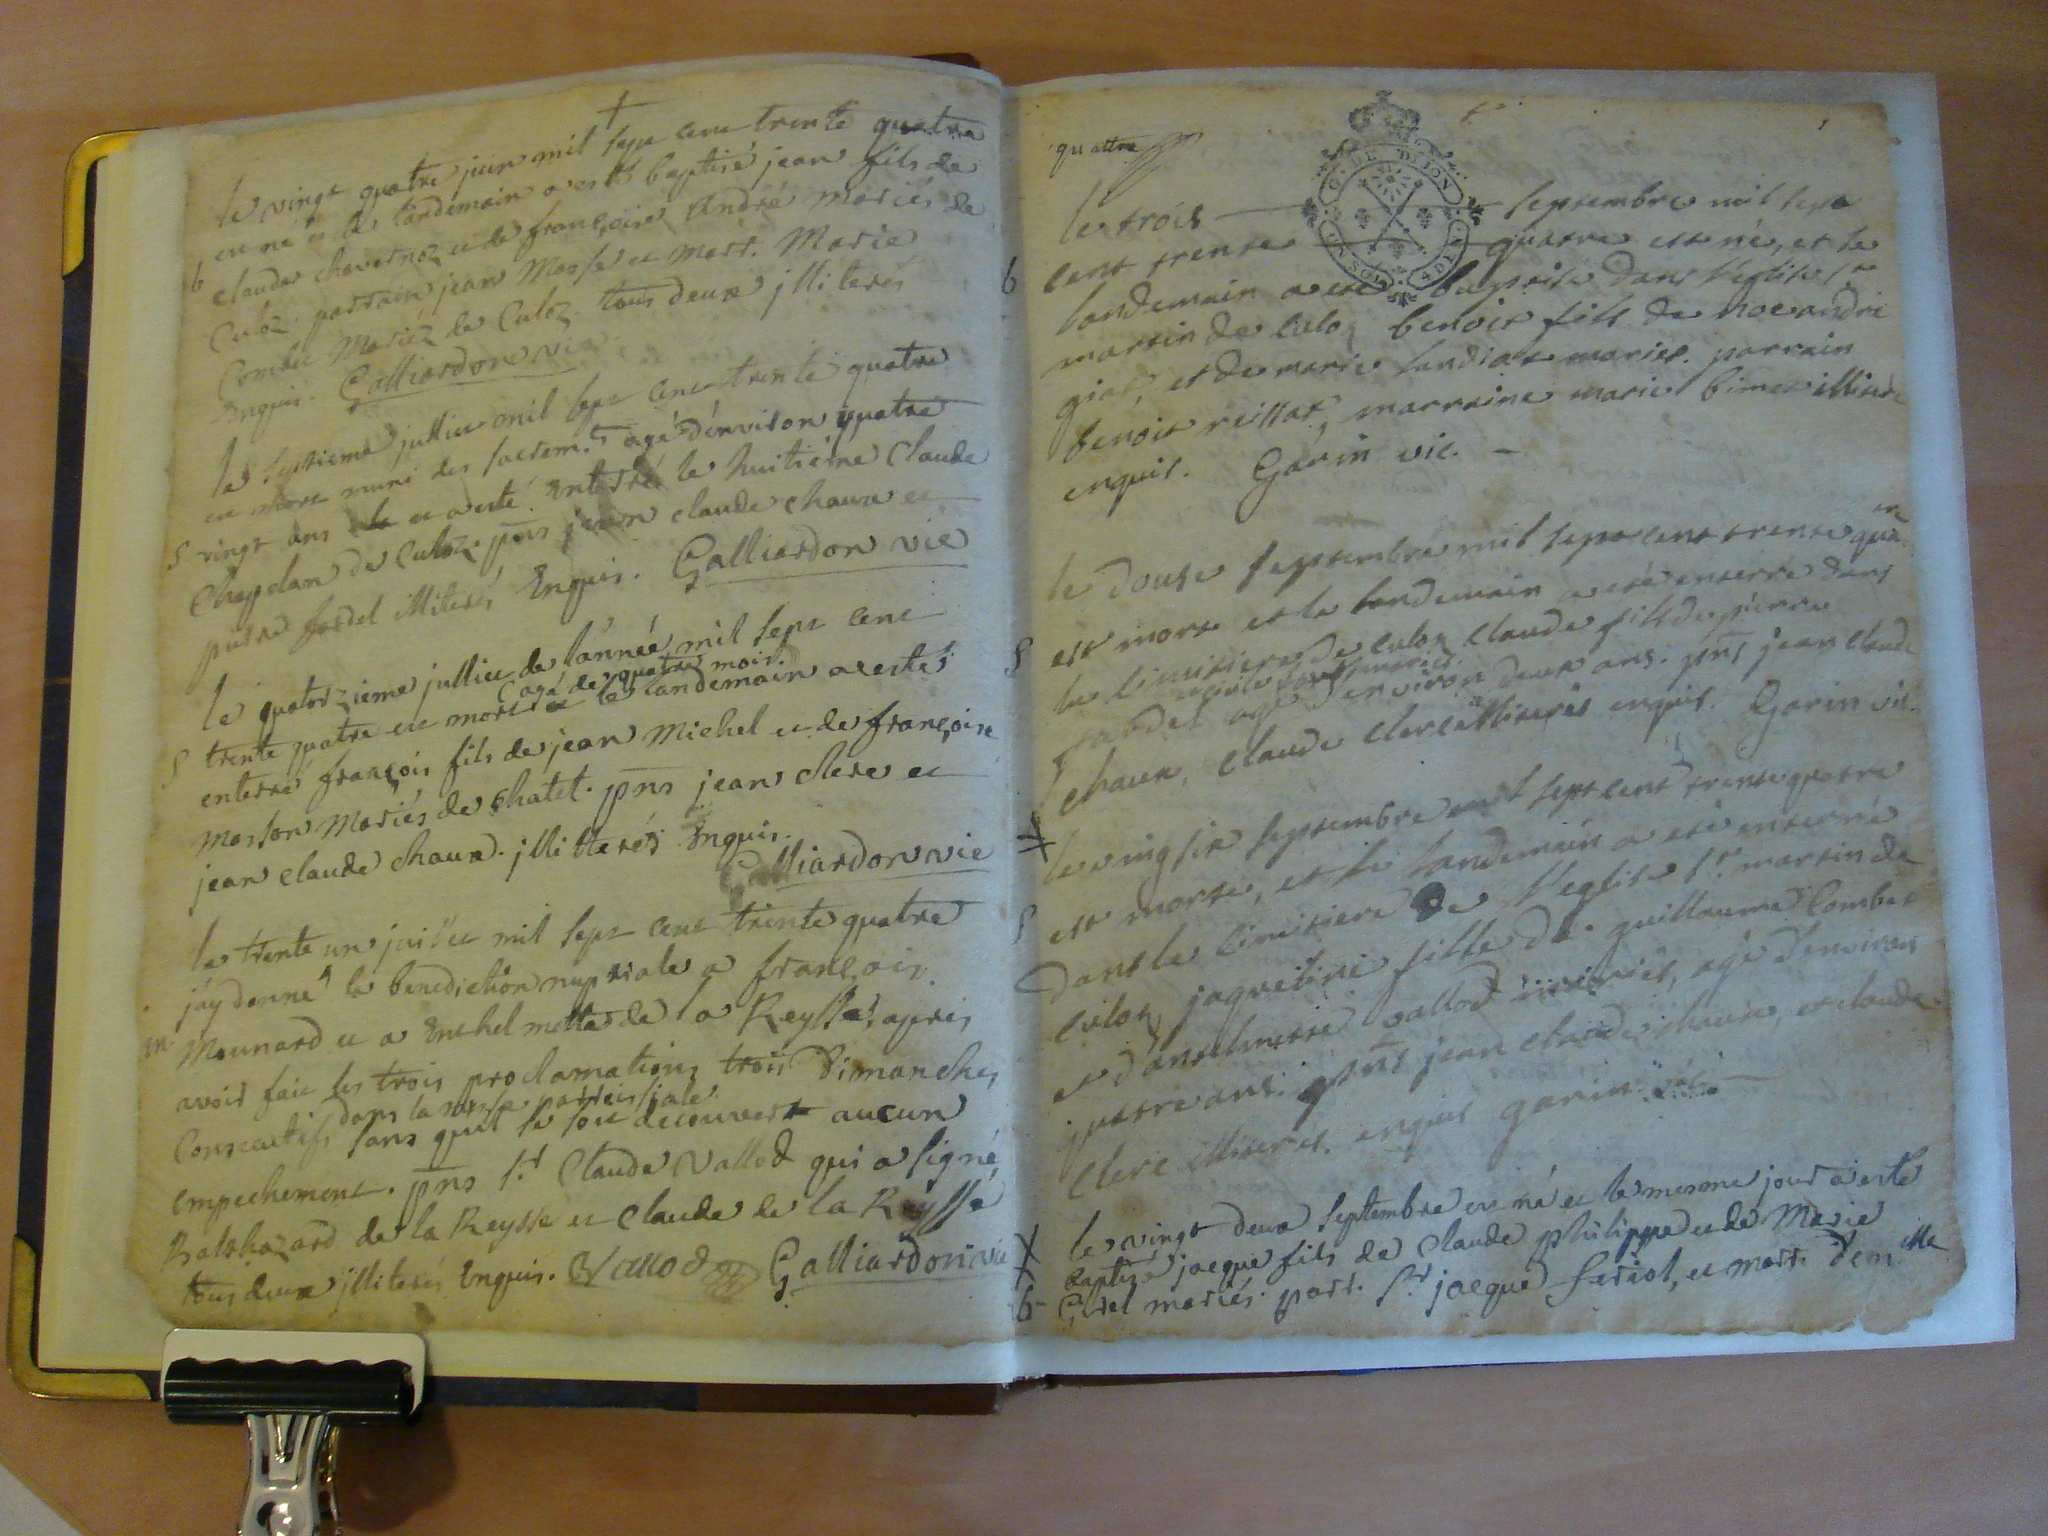 le vingt quatre juin mil sept cent trente quatre
en né et le landemain a esté baptisé jean fils de
b claude chavornoz et de françoise André mariés de
Culoz. parrain jean et marr. Marie
Combet Mariéz de Culoz. tous deux jlliterés
Enquis. Galliardon vic.
le septieme julliet mil sept cent trente quatre
en mort muni des sacrem.ts agé d'environ quatre
S vingt ans et a esté Enterré le huitième Claude
Chapelan de Culoz. pns jean claude chaux et
pierre jlliterés Enquis. Galliardon vic
le quatorzieme julliet de l'année mil sept cent
agé de quatre mois
S trente quatre en mort et le landemain a esté
enterré françois fils de jean Michel et de françoise
Masson Mariés de chatel. pns jean clerc et
jean claude chaux. jllitterés Enquis.
Galliardon vic
le trente un juillet mil sept cent trente quatre
j'ay donné la benediction nuptiale a françois
m Mounard et a mette de la Reysse, apres
avoir fait les trois proclamations trois Dimanches
dans la messe parroissiale
Consecutifs sans qu'il se soit decouvert aucun
empechement. pns Sr Claude Vallod qui a signé,
Balthazard de la Reysse et claude de la Reysse
tous deux jlliterés Enquis. Vallod Galliardon vic
quattre
G. DE DIJON
le trois septembre mil sept
cent trente quatre est né, et le
b landemain a eté baptisé dans l'eglise St
martin de culoz benoit fils de noe andré
giat, et de marie landiat mariés. parrain
benoit reillat, marraine marie illiteré
enquis. Garin vic.
le douse septembre mil sept cent trente qua
tre
S est mort et le landemain a eté enterré dans
le cimitiere de culoz claude fils de pierre
agé d'environ deux ans. pns jean claude
chaux, claude clerc illiterés enquis. Garin vic.
le vingsix septembre mil sept cent trente quatre
S est morte, et le landemain a eté enterré
dans le cimitiere de l'eglise St martin de
culoz, jaqueline fille de guillaume Combet
et d'anthelmette vallod mariés, agé d'environ
quatre ans. pns jean claude chaux, et claude
clerc illiterés. enquis garin vic.
le vingt deux septembre en né et le mesme jour a esté
baptisé jacque fils de Claude philippe et de Marie
b mariés. parr. Sr jacque feriol, et marr. Dem.ille